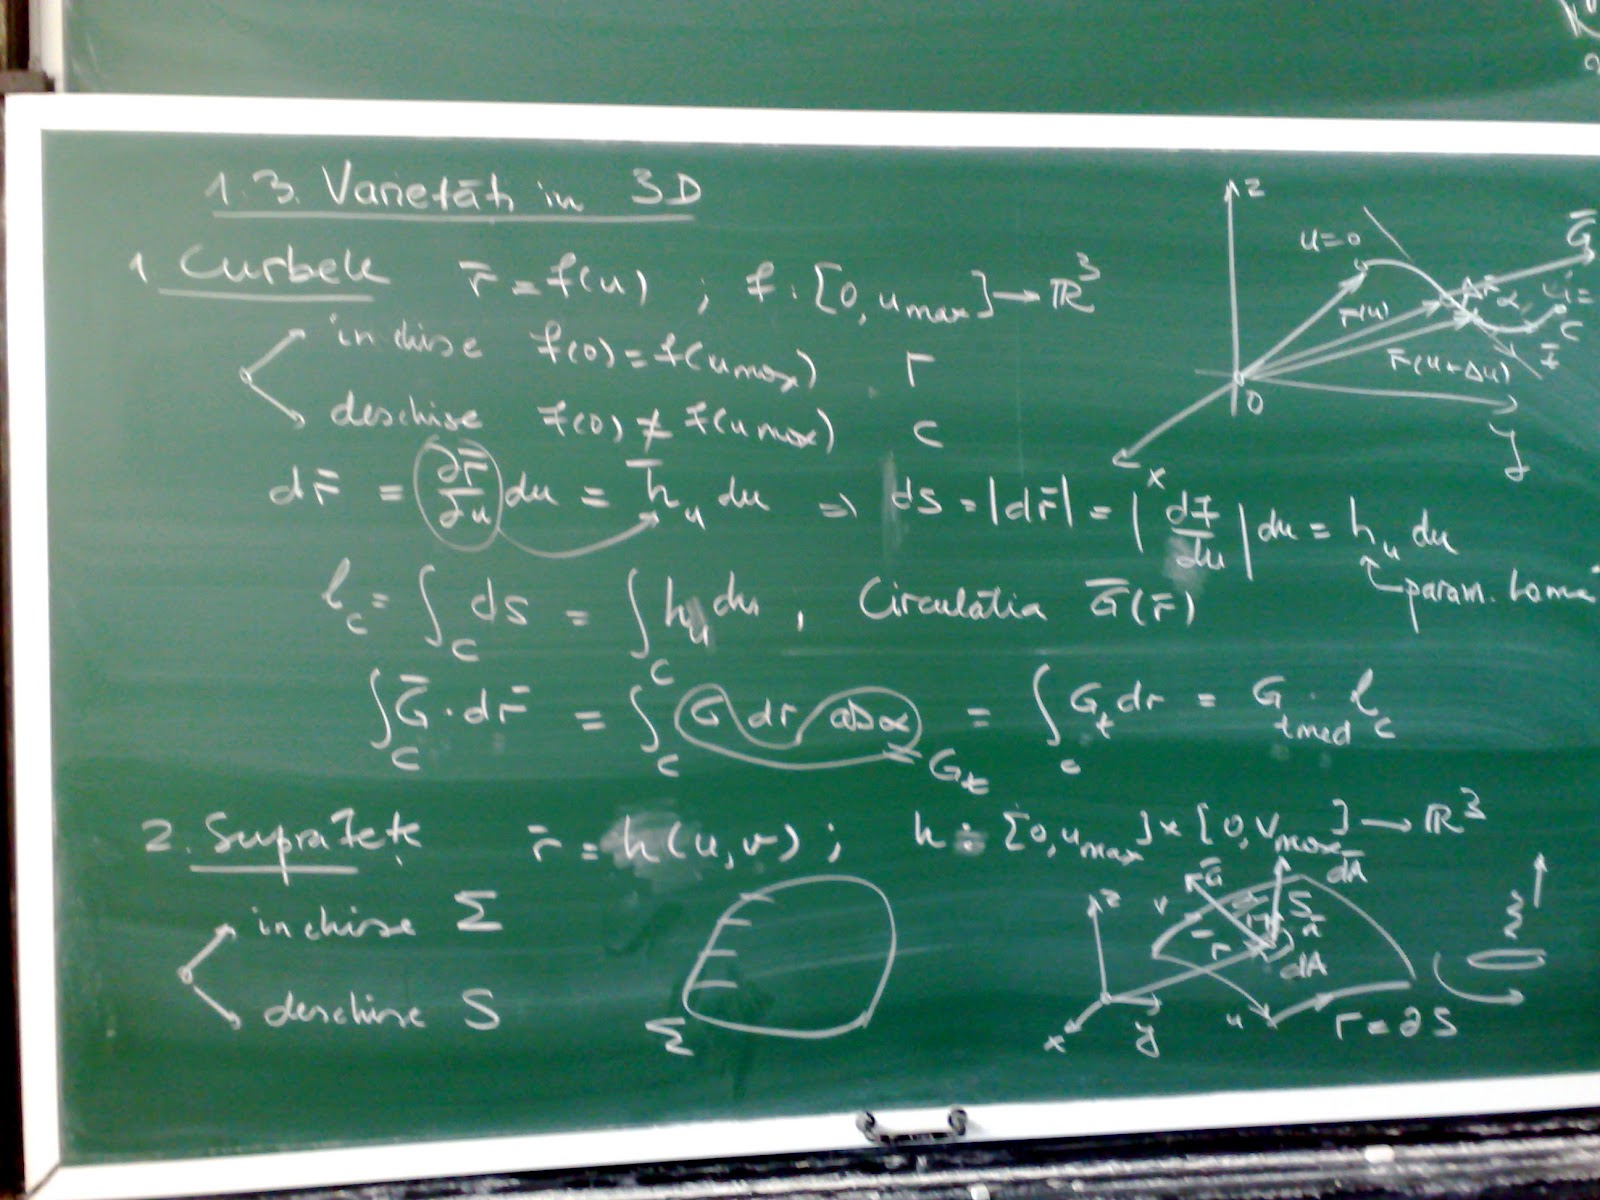 1.3. Varietăți in 3D
1 Curbele r̄ = f(u) ; f : [0, u_max] → ℝ³
inchise f(0) = f(u_max) Γ
deschise f(0) ≠ f(u_max) C
dr̄ = ∂r̄/∂u du = h̄_u du ⇒ ds = |dr̄| = |df̄/du| du = h_u du
param. Lamé
l_C = ∫_C ds = ∫_C h_u du , Circulatia Ḡ(r̄)
∫_C Ḡ · dr̄ = ∫_C G dr cos α = ∫_C G_t dr = G_tmed l_C
= G_t
2. Suprafețe r̄ = h(u, v) ; h : [0, u_max] × [0, v_max] → ℝ³
inchise Σ
deschise S
Σ
z
u=0
Ḡ
r̄(u)
Δr̄
α
C
r̄(u+Δu)
t̄
O
x
y
z
v
Ḡ
dĀ
S
n̄
r̄
dA
u
x
y
Γ = ∂S